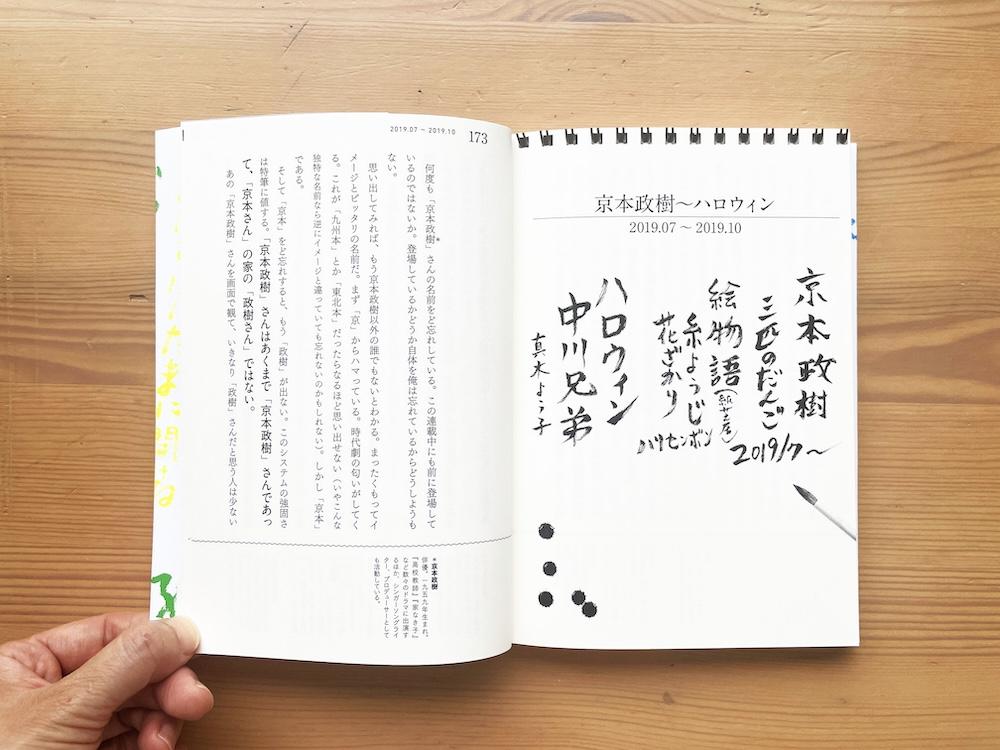 京本政樹〜ハロウィン
2019.07 〜 2019.10
京本政樹
三匹のだんご
2019/7〜
絵物語(紙芝居)
糸ようじ
花ざかり
ハリセンボン
ハロウィン
中川兄弟
真木よう子
2019.07 〜 2019.10 173
何度も「京本政樹*」さんの名前をど忘れしている。この連載中にも前に登場して
いるのではないか。登場しているかどうか自体を俺は忘れているからどうしようも
ない。
思い出してみれば、もう京本政樹以外の誰でもないとわかる。まったくもってイ
メージとピッタリの名前だ。まず「京」からハマっている。時代劇の匂いがしてく
る。これが「九州本」とか「東北本」だったらなるほど思い出せない（いやこんな
独特な名前なら逆にイメージと違っていても忘れないのかもしれない）。しかし「京本」
である。
そして「京本」をど忘れすると、もう「政樹」が出ない。このシステムの強固さ
は特筆に値する。「京本政樹」さんはあくまで「京本政樹」さんであっ
て、「京本さん」の家の「政樹さん」ではない。
あの「京本政樹」さんを画面で観て、いきなり「政樹」さんだと思う人は少ない
*京本政樹
俳優。一九五九年生まれ。
『高校教師』『家なき子』
など数々のドラマに出演す
るほか、シンガーソングライ
ター、プロデューサーとして
も活動している。